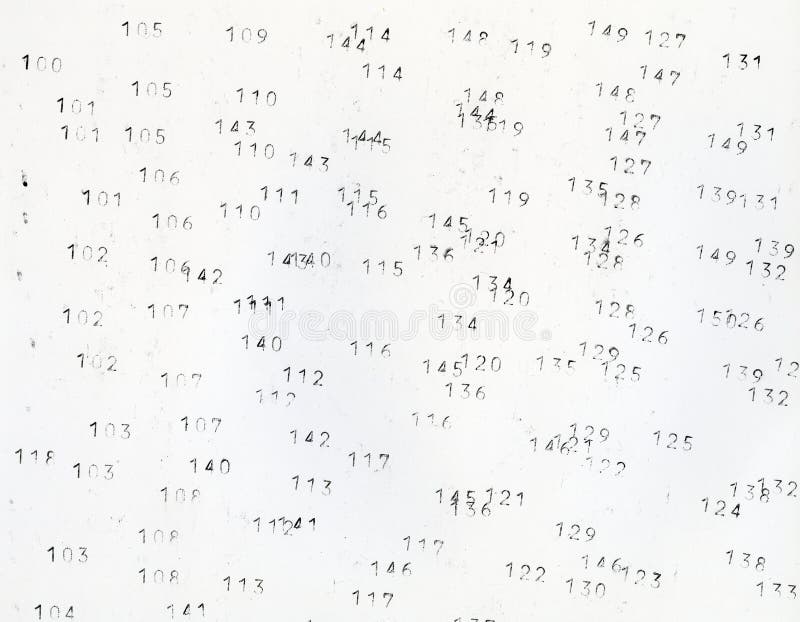 105 109 114 144 148 119 149 127
100 114 147 131
105 110 148 148
101 144 136 119 127
101 105 143 110 143 144 115 147 149 131
127
106 111 115 119 135 128 139 131
101 106 110 116 145 120 121 126
102 106 142 143 140 115 136 134 128 149 139 132
107 111 134 120 128
102 140 116 134 126 150 126
102 107 112 145 120 135 129 125 139 12
112 136 132
103 107 142 116 129 125
118 103 140 117 146 121 122
108 113 145 121 136 138 132 124
108 112 141 129
103 117 138
108 113 146 122 146 123 130 133
104 141 117